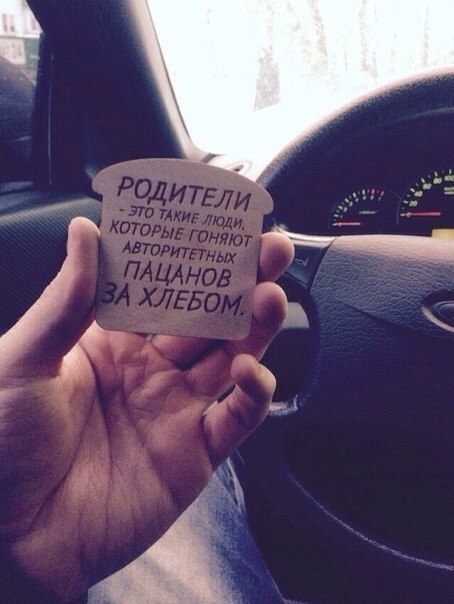 РОДИТЕЛИ
- ЭТО ТАКИЕ ЛЮДИ,
КОТОРЫЕ ГОНЯЮТ
АВТОРИТЕТНЫХ
ПАЦАНОВ
ЗА ХЛЕБОМ.